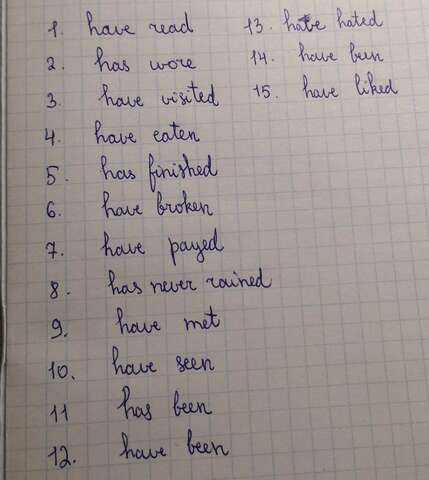 1. have read
2. has wore
3. have visited
4. have eaten
5. has finished
6. have broken
7. have payed
8. has never rained
9. have met
10. have seen
11 has been
12. have been
13. have hated
14. have been
15. have liked